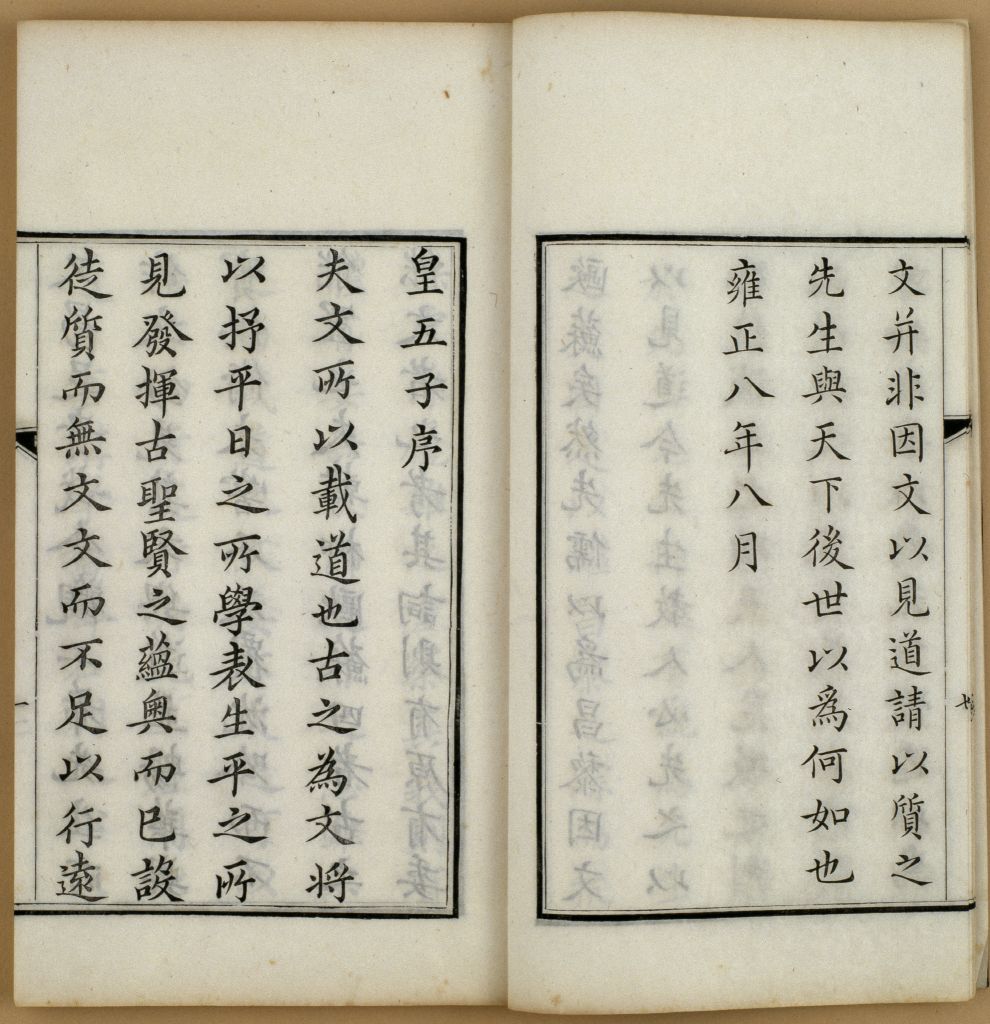 文并非因文以見道請以質之
先生與天下後世以爲何如也
雍正八年八月
皇五子序
夫文所以載道也古之為文將
以抒平日之所學表生平之所
見發揮古聖賢之蘊奧而已設
徒質而無文文而不足以行遠